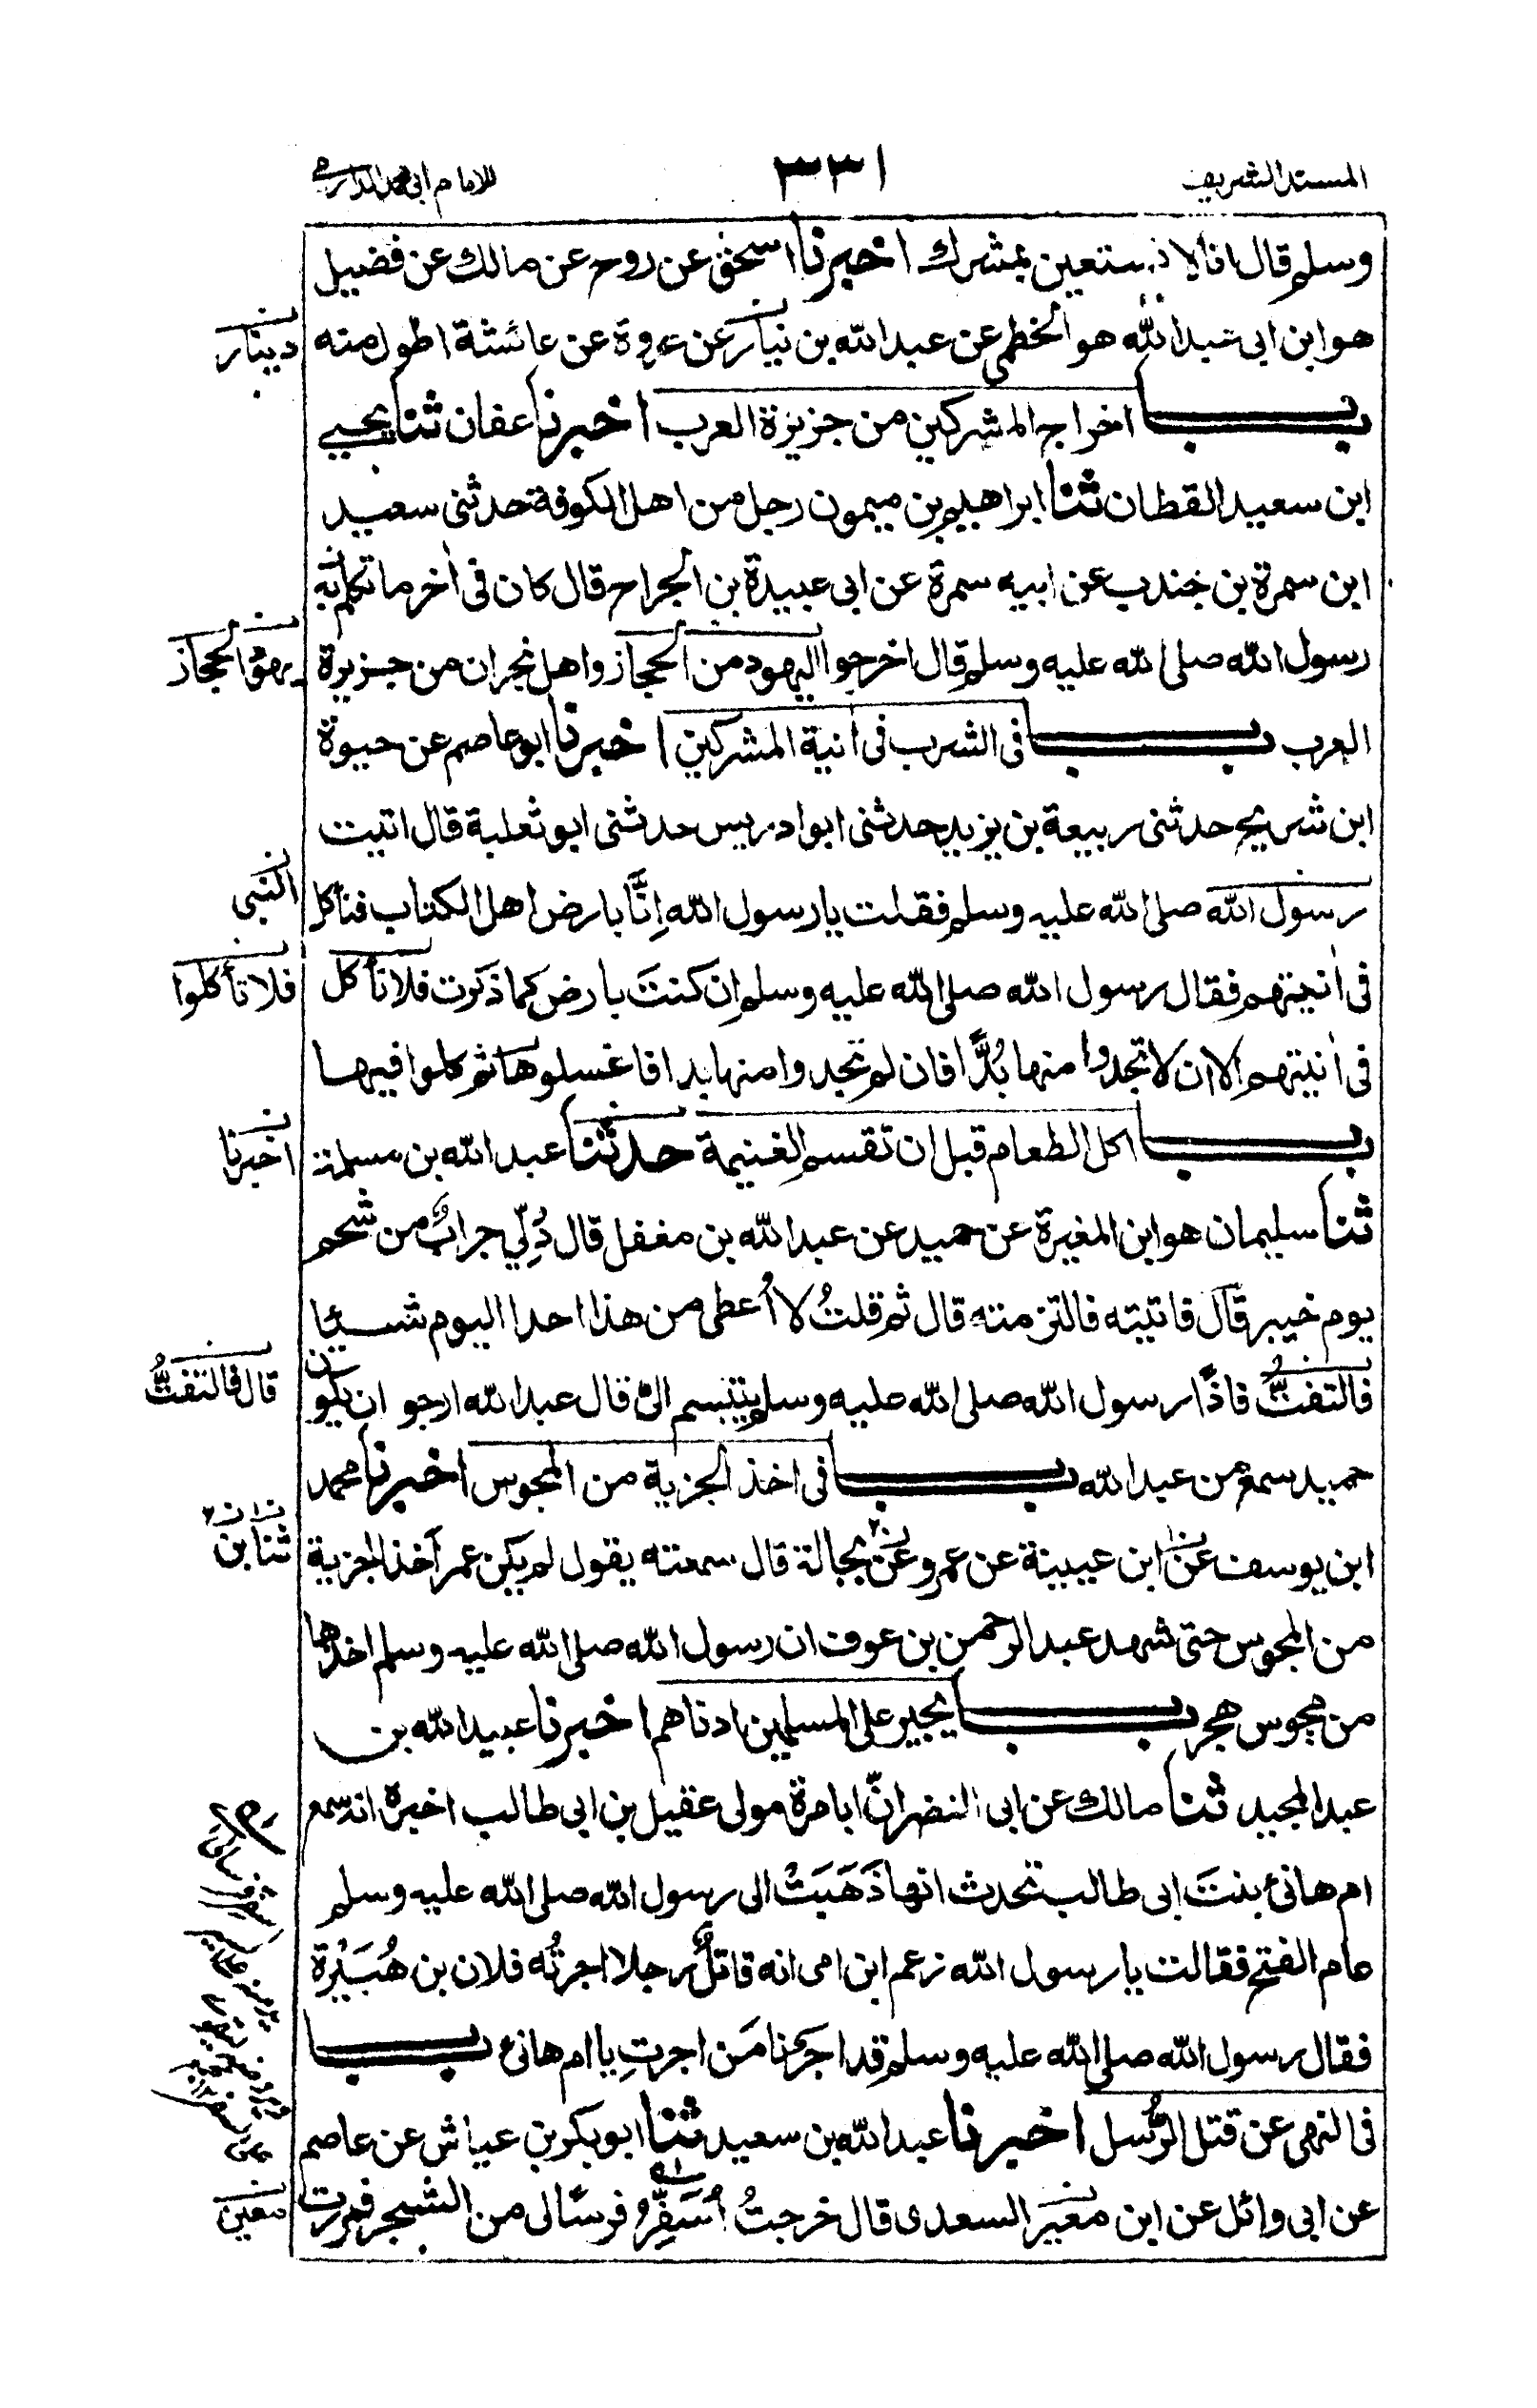 المسند الشريف
٣٣١
للامام ابى محمد الدارمى
وسلم قال انا لا نستعين بمشرك اخبرنا اسحٰق عن روح عن مالك عن فضيل
هو ابن ابى عبد الله هو الخطمى عن عبد الله بن نيار عن عروة عن عائشة اطول منه
دينار
باب اخراج المشركين من جزيزة العرب اخبرنا عفان ثنا يحيى
ابن سعيد القطان ثنا ابراهيم بن ميمون رجل من اهل الكوفة حدثنى سعيد
ابن سمرة بن جندب عن ابيه سمرة عن ابى عبيدة بن الجراح قال كان فى اٰخر ما تكلم به
رسول الله صلى الله عليه وسلم قال اخرجوا اليهود من الحجاز واهل نجران من جزيرة
يهود الحجاز
العرب باب فى الشرب فى اٰنية المشركين اخبرنا ابو عاصم عن حيوة
ابن شريح حدثنى ربيعة بن يزيد حدثنى ابو ادريس حدثنى ابو ثعلبة قال اتيت
رسول الله صلى الله عليه وسلم فقلت يا رسول الله اِنَّا بارض اهل الكتاب فنأكل
النبى
فى اٰنيتهم فقال رسول الله صلى الله عليه وسلم ان كنتَ بارض كما ذكرت فلا تأكل
فلا تأكلوا
فى اٰنيتهم الا ان لا تجدوا منها بُدًّا فان لم تجدوا منها بدا فاغسلوها ثم كلوا فيها
باب اكل الطعام قبل ان تقسم الغنيمة حدثنا عبد الله بن مسلمة
اخبرنا
ثنا سليمان هو ابن المغيرة عن حميد عن عبد الله بن مغفل قال دُلِّي جرابٌ من شحم
يوم خيبر قال فاتيته فالتزمته قال ثم قلتُ لا اُعطى من هذا احدا اليوم شيئا
فالتفتُّ فاذا رسول الله صلى الله عليه وسلم يتبسم الىّ قال عبد الله ارجو ان يكون
قال فالتفتُّ
حميد سمع من عبد الله باب فى اخذ الجزية من المجوس اخبرنا محمد
ابن يوسف عن ابن عيينة عن عمرو عن بجالة قال سمعته يقول لم يكن عمر اَخذ الجزية
ثنا بن
من المجوس حتى شهد عبد الرحمن بن عوف ان رسول الله صلى الله عليه وسلم اخذها
من مجوس هجر باب يجير على المسلمين ادناهم اخبرنا عبيد الله بن
عبد المجيد ثنا مالك عن ابى النضر انّ ابا مرة مولى عقيل بن ابى طالب اخبره انه سمع
ام هانئ بنتَ ابى طالب تحدث انها ذَهَبَتْ الى رسول الله صلى الله عليه وسلم
عام الفتح فقالت يا رسول الله زعم ابن امى انه قاتلٌ رجلا اجرتُه فلان بن هُبَيْرة
فقال رسول الله صلى الله عليه وسلم قد اجرنا مَن اجرتِ يا ام هانئ باب
فى النهى عن قتل الرُّسل اخبرنا عبد الله بن سعيد ثنا ابو بكر بن عياش عن عاصم
عن ابى وائل عن ابن مغير السعدى قال خرجتُ اُسَفِّرُ فرسًا لى من الشجر فمررت
معين